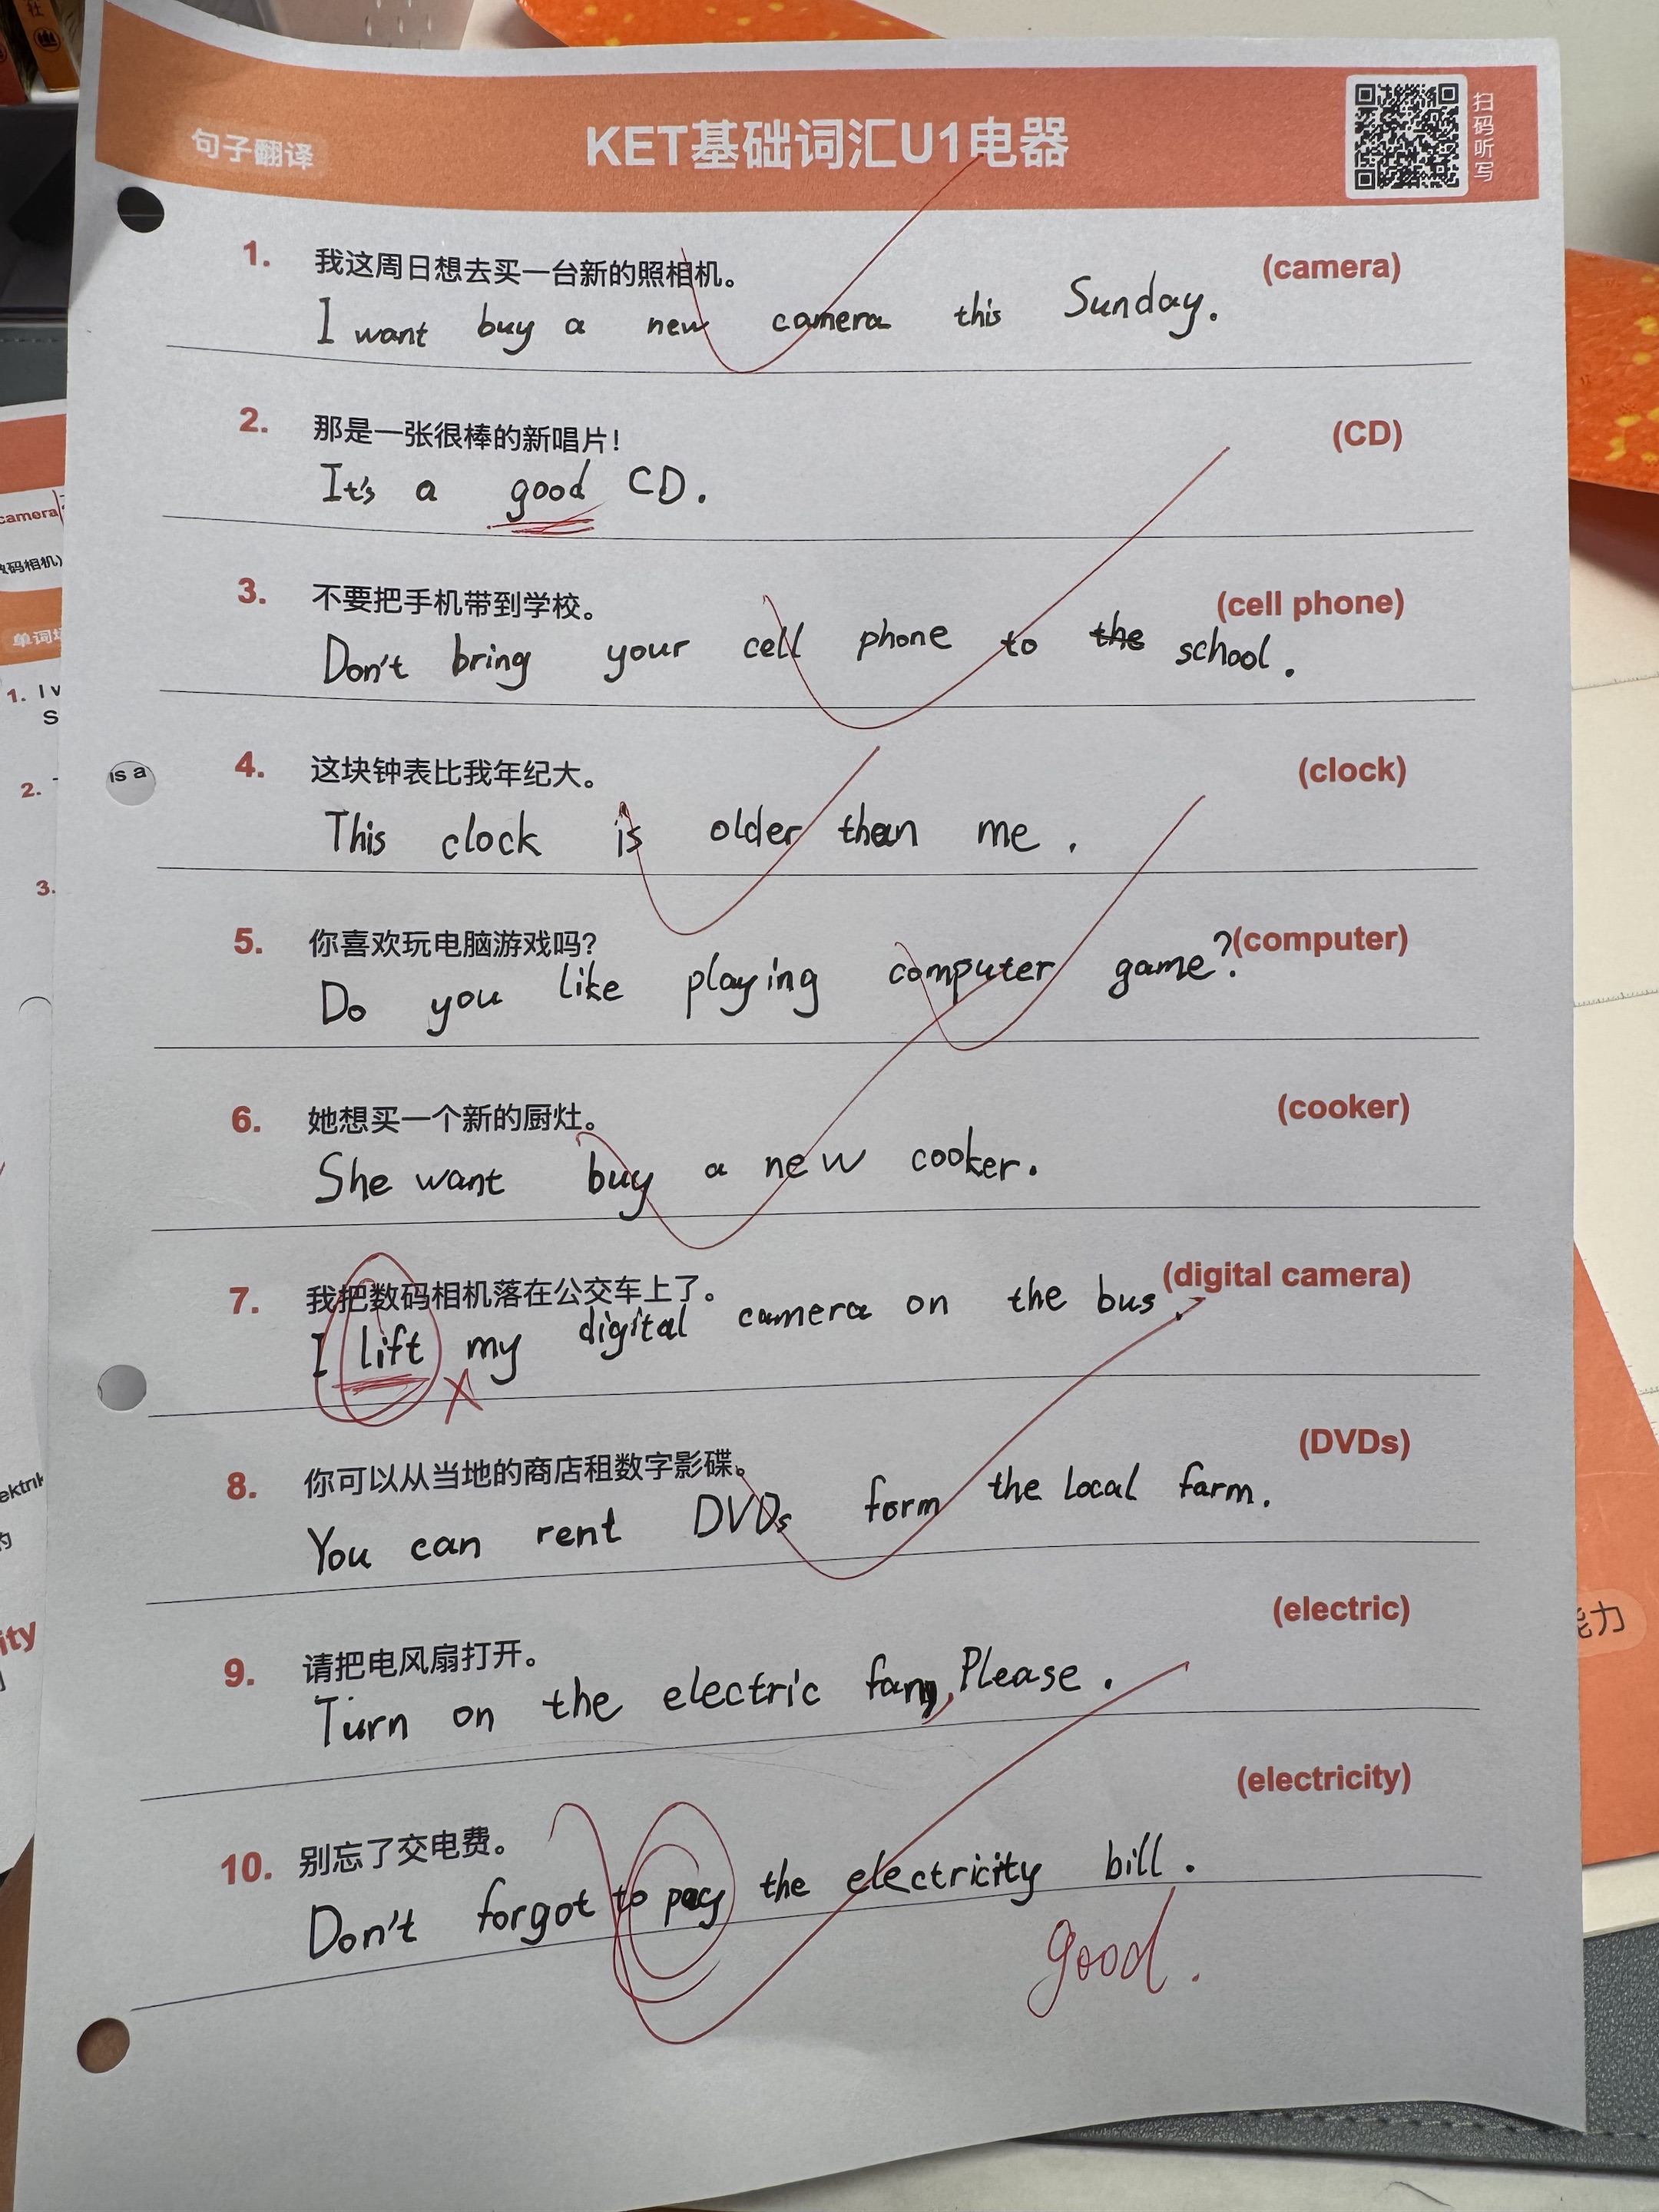 社
句子翻译
KET基础词汇U1电器
扫码听写
1. 我这周日想去买一台新的照相机。 (camera)
I want buy a new camera this Sunday.
2. 那是一张很棒的新唱片! (CD)
It's a good CD.
3. 不要把手机带到学校。 (cell phone)
Don't bring your cell phone to the school.
4. 这块钟表比我年纪大。 (clock)
This clock is older than me.
5. 你喜欢玩电脑游戏吗? (computer)
Do you like playing computer game?
6. 她想买一个新的厨灶。 (cooker)
She want buy a new cooker.
7. 我把数码相机落在公交车上了。 (digital camera)
I lift my digital camera on the bus.
8. 你可以从当地的商店租数字影碟。 (DVDs)
You can rent DVDs form the local farm.
9. 请把电风扇打开。 (electric)
Turn on the electric fan, Please.
10. 别忘了交电费。 (electricity)
Don't forgot to pay the electricity bill.
good.
is a
camera
数码相机)
单词
1. I
S
2.
3.
ity
的
能力